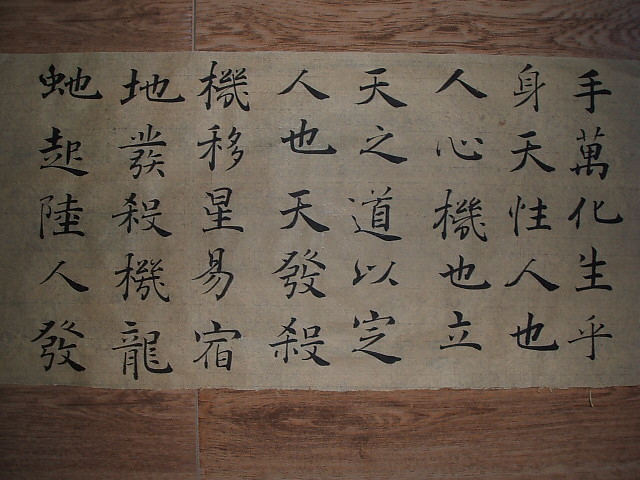 手萬化生乎
身天性人也
人心機也立
天之道以定
人也天發殺
機移星易宿
地發殺機龍
虵起陸人發